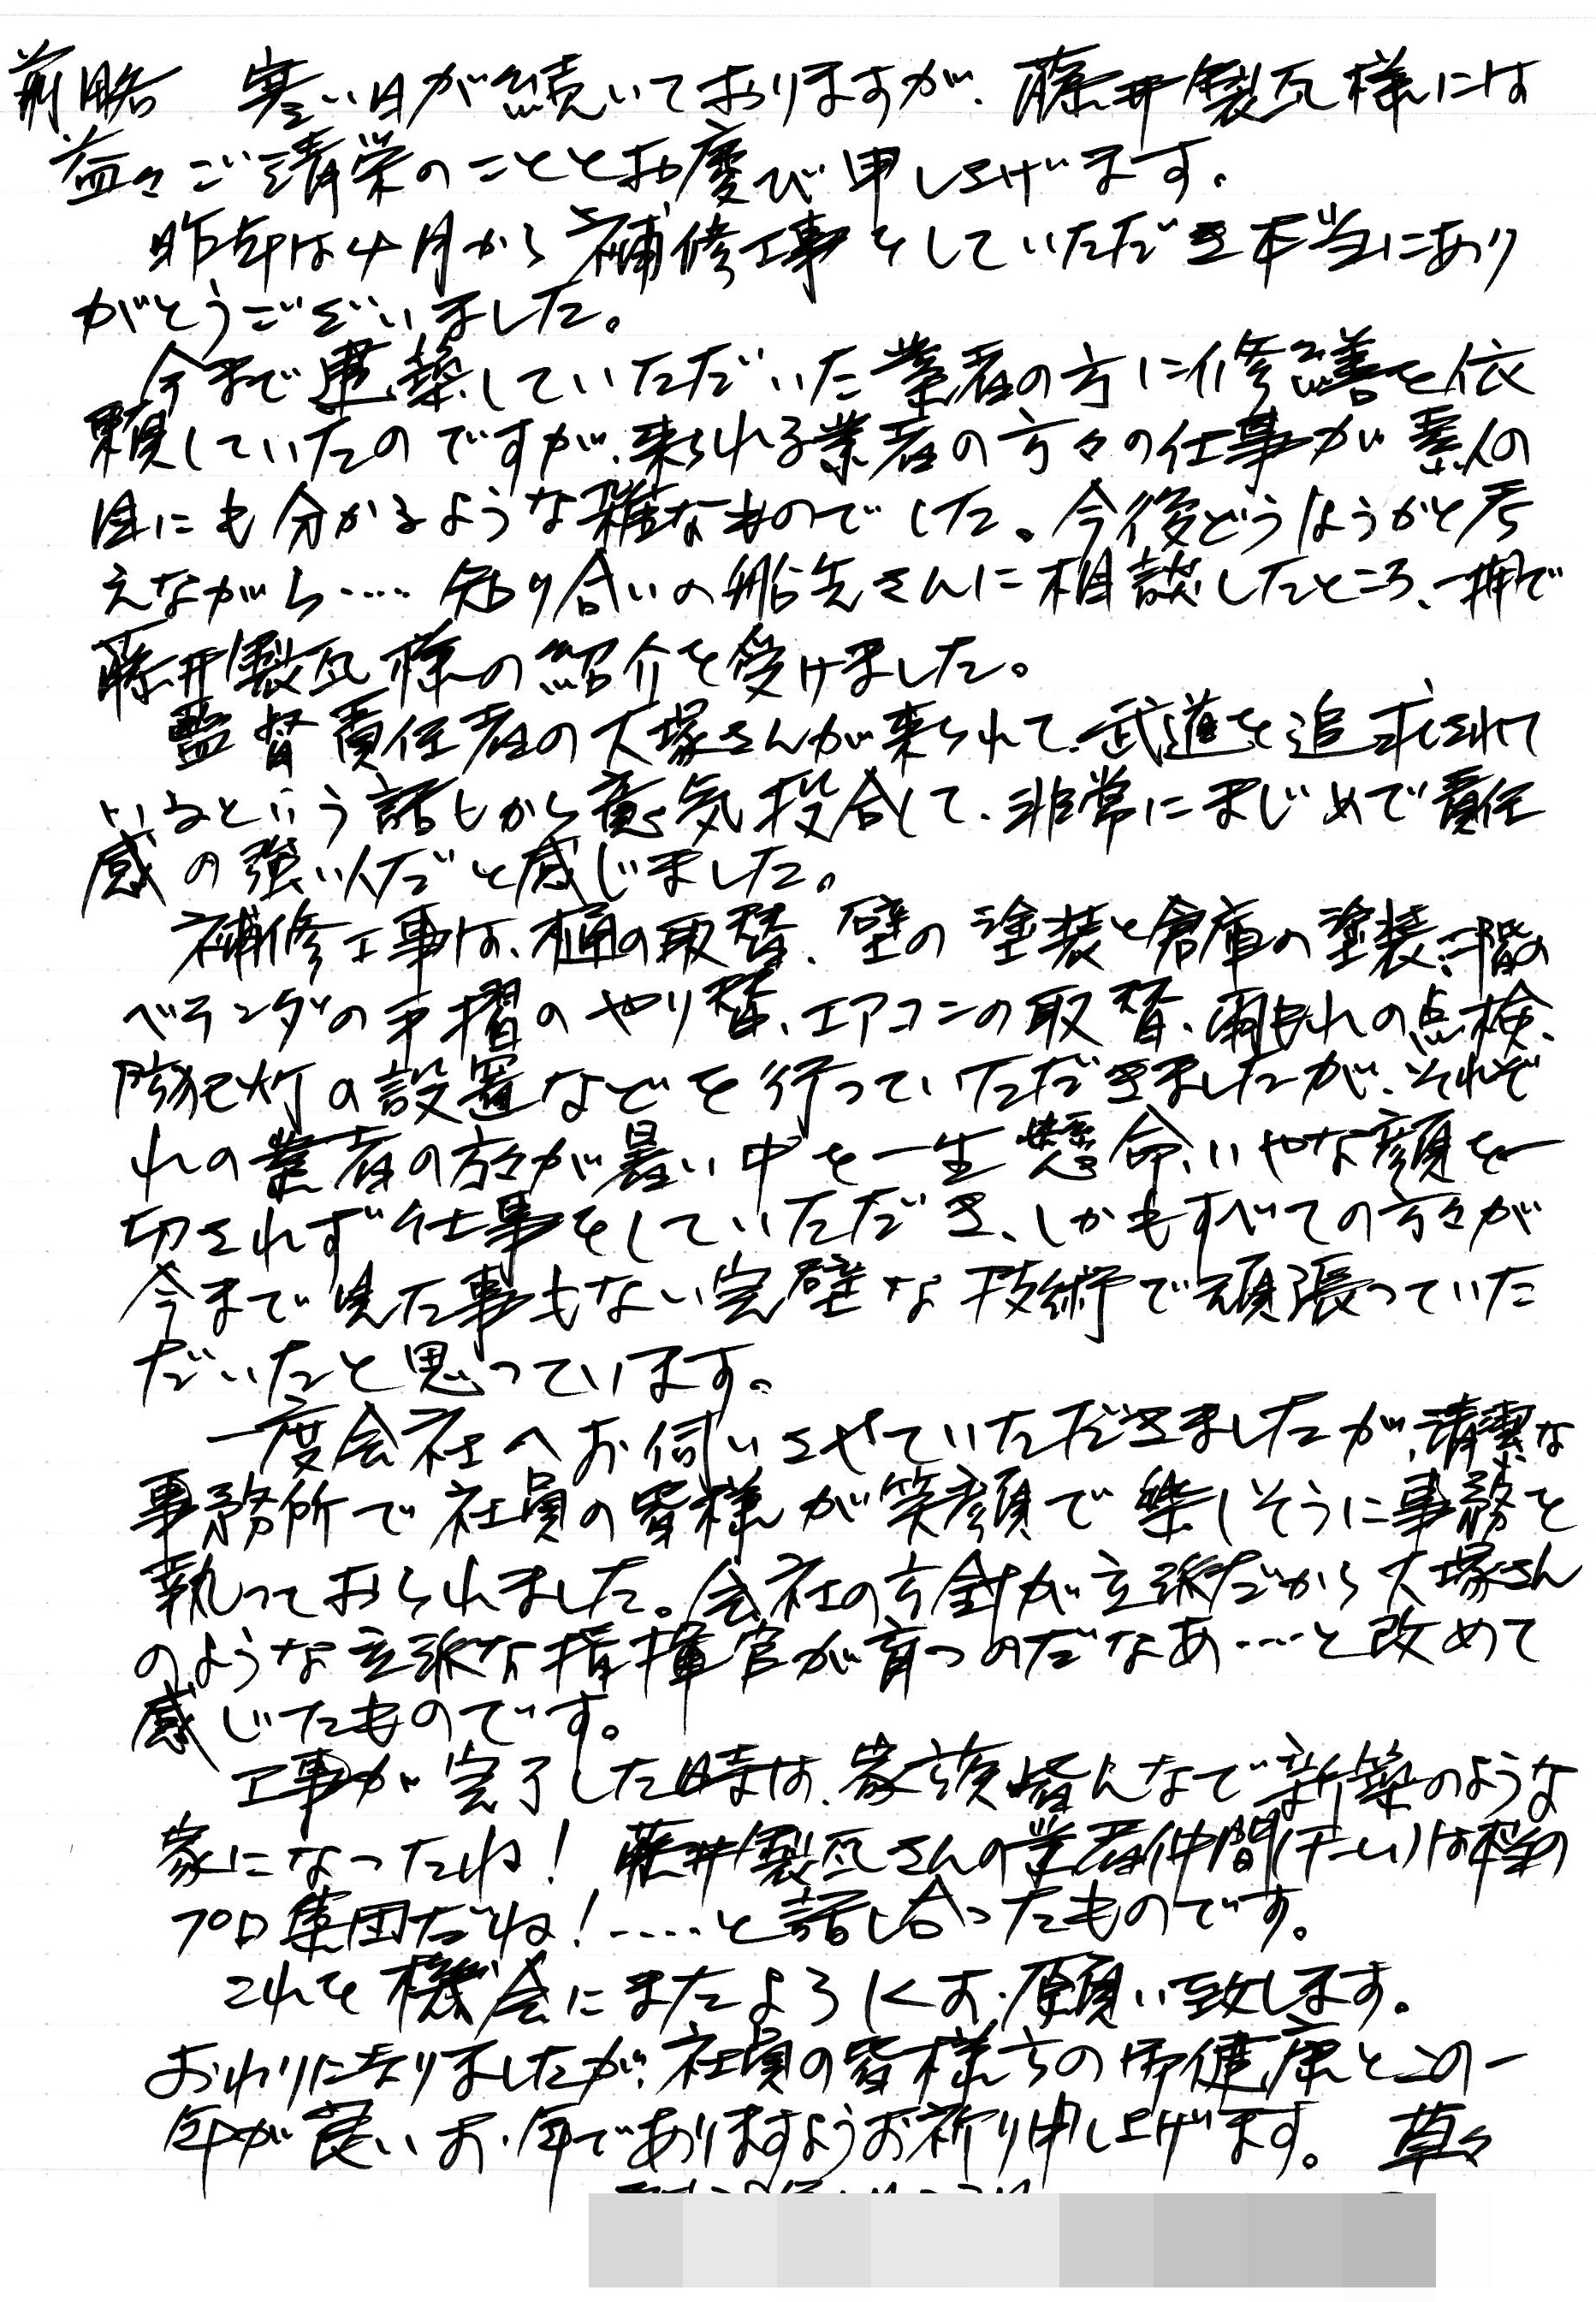 前略　寒い日が続いておりますが、藤井製瓦様には
益々ご清栄のこととお慶び申し上げます。
昨年は4月から補修工事をしていただき本当にあり
がとうございました。
今まで建築していただいた業者の方に修善を依
頼していたのですが、来られる業者の方々の仕事が素人の
目にも分かるような雑なものでした。今後どうしようかと考
えながら‥‥知り合いの船先さんに相談したところ、一押で
藤井製瓦様の紹介を受けました。
監督責任者の大塚さんが来られて、武道を追求されて
いるという話しから意気投合して、非常にまじめで責任
感の強い人だと感じました。
補修工事は、樋の取替、壁の塗装と倉庫の塗装、二階の
ベランダの手摺のやり替、エアコンの取替、雨もれの点検、
防犯灯の設置などを行っていただきましたが、それぞ
れの業者の方々が暑い中を一生懸命、いやな顔を一
切されず仕事をしていただき、しかもすべての方々が
今まで見た事もない完璧な技術で頑張っていた
だいたと思っています。
一度会社へお伺いさせていただきましたが、清潔な
事務所で社員の皆様が笑顔で楽しそうに事務を
執っておられました。会社の方針が立派だから大塚さん
のような立派な指揮官が育つのだなあ‥‥と改めて
感じたものです。
工事が完了した時は、家族皆んなで新築のような
家になったね！藤井製瓦さんの業者仲間(チーム)は極の
プロ集団だね！‥‥と話し合ったものです。
これを機会にまたよろしくお願い致します。
おわりになりましたが、社員の皆様方の御健康とこの一
年が良いお年でありますようお祈り申し上げます。　草々